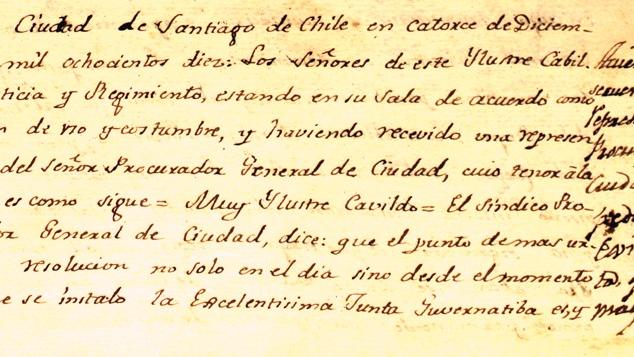 Ciudad de Santiago de Chile en catorce de Diciem-
mil ochocientos diez: Los Señores de este Ylustre Cabil-
ticia y Regimiento, estando en su Sala de acuerdo como
de vso y costumbre, y haviendo recevido una represen
del Señor Procurador General de Ciudad, cuio tenor â la
es como sigue = Muy Ylustre Cavildo = El Síndico Pro-
or General de Ciudad, dice: que el punto de mas ur-
resolucion no solo en el dia sino desde el momento
e se instaló la Excelentisima Junta Guvernatiba es, y